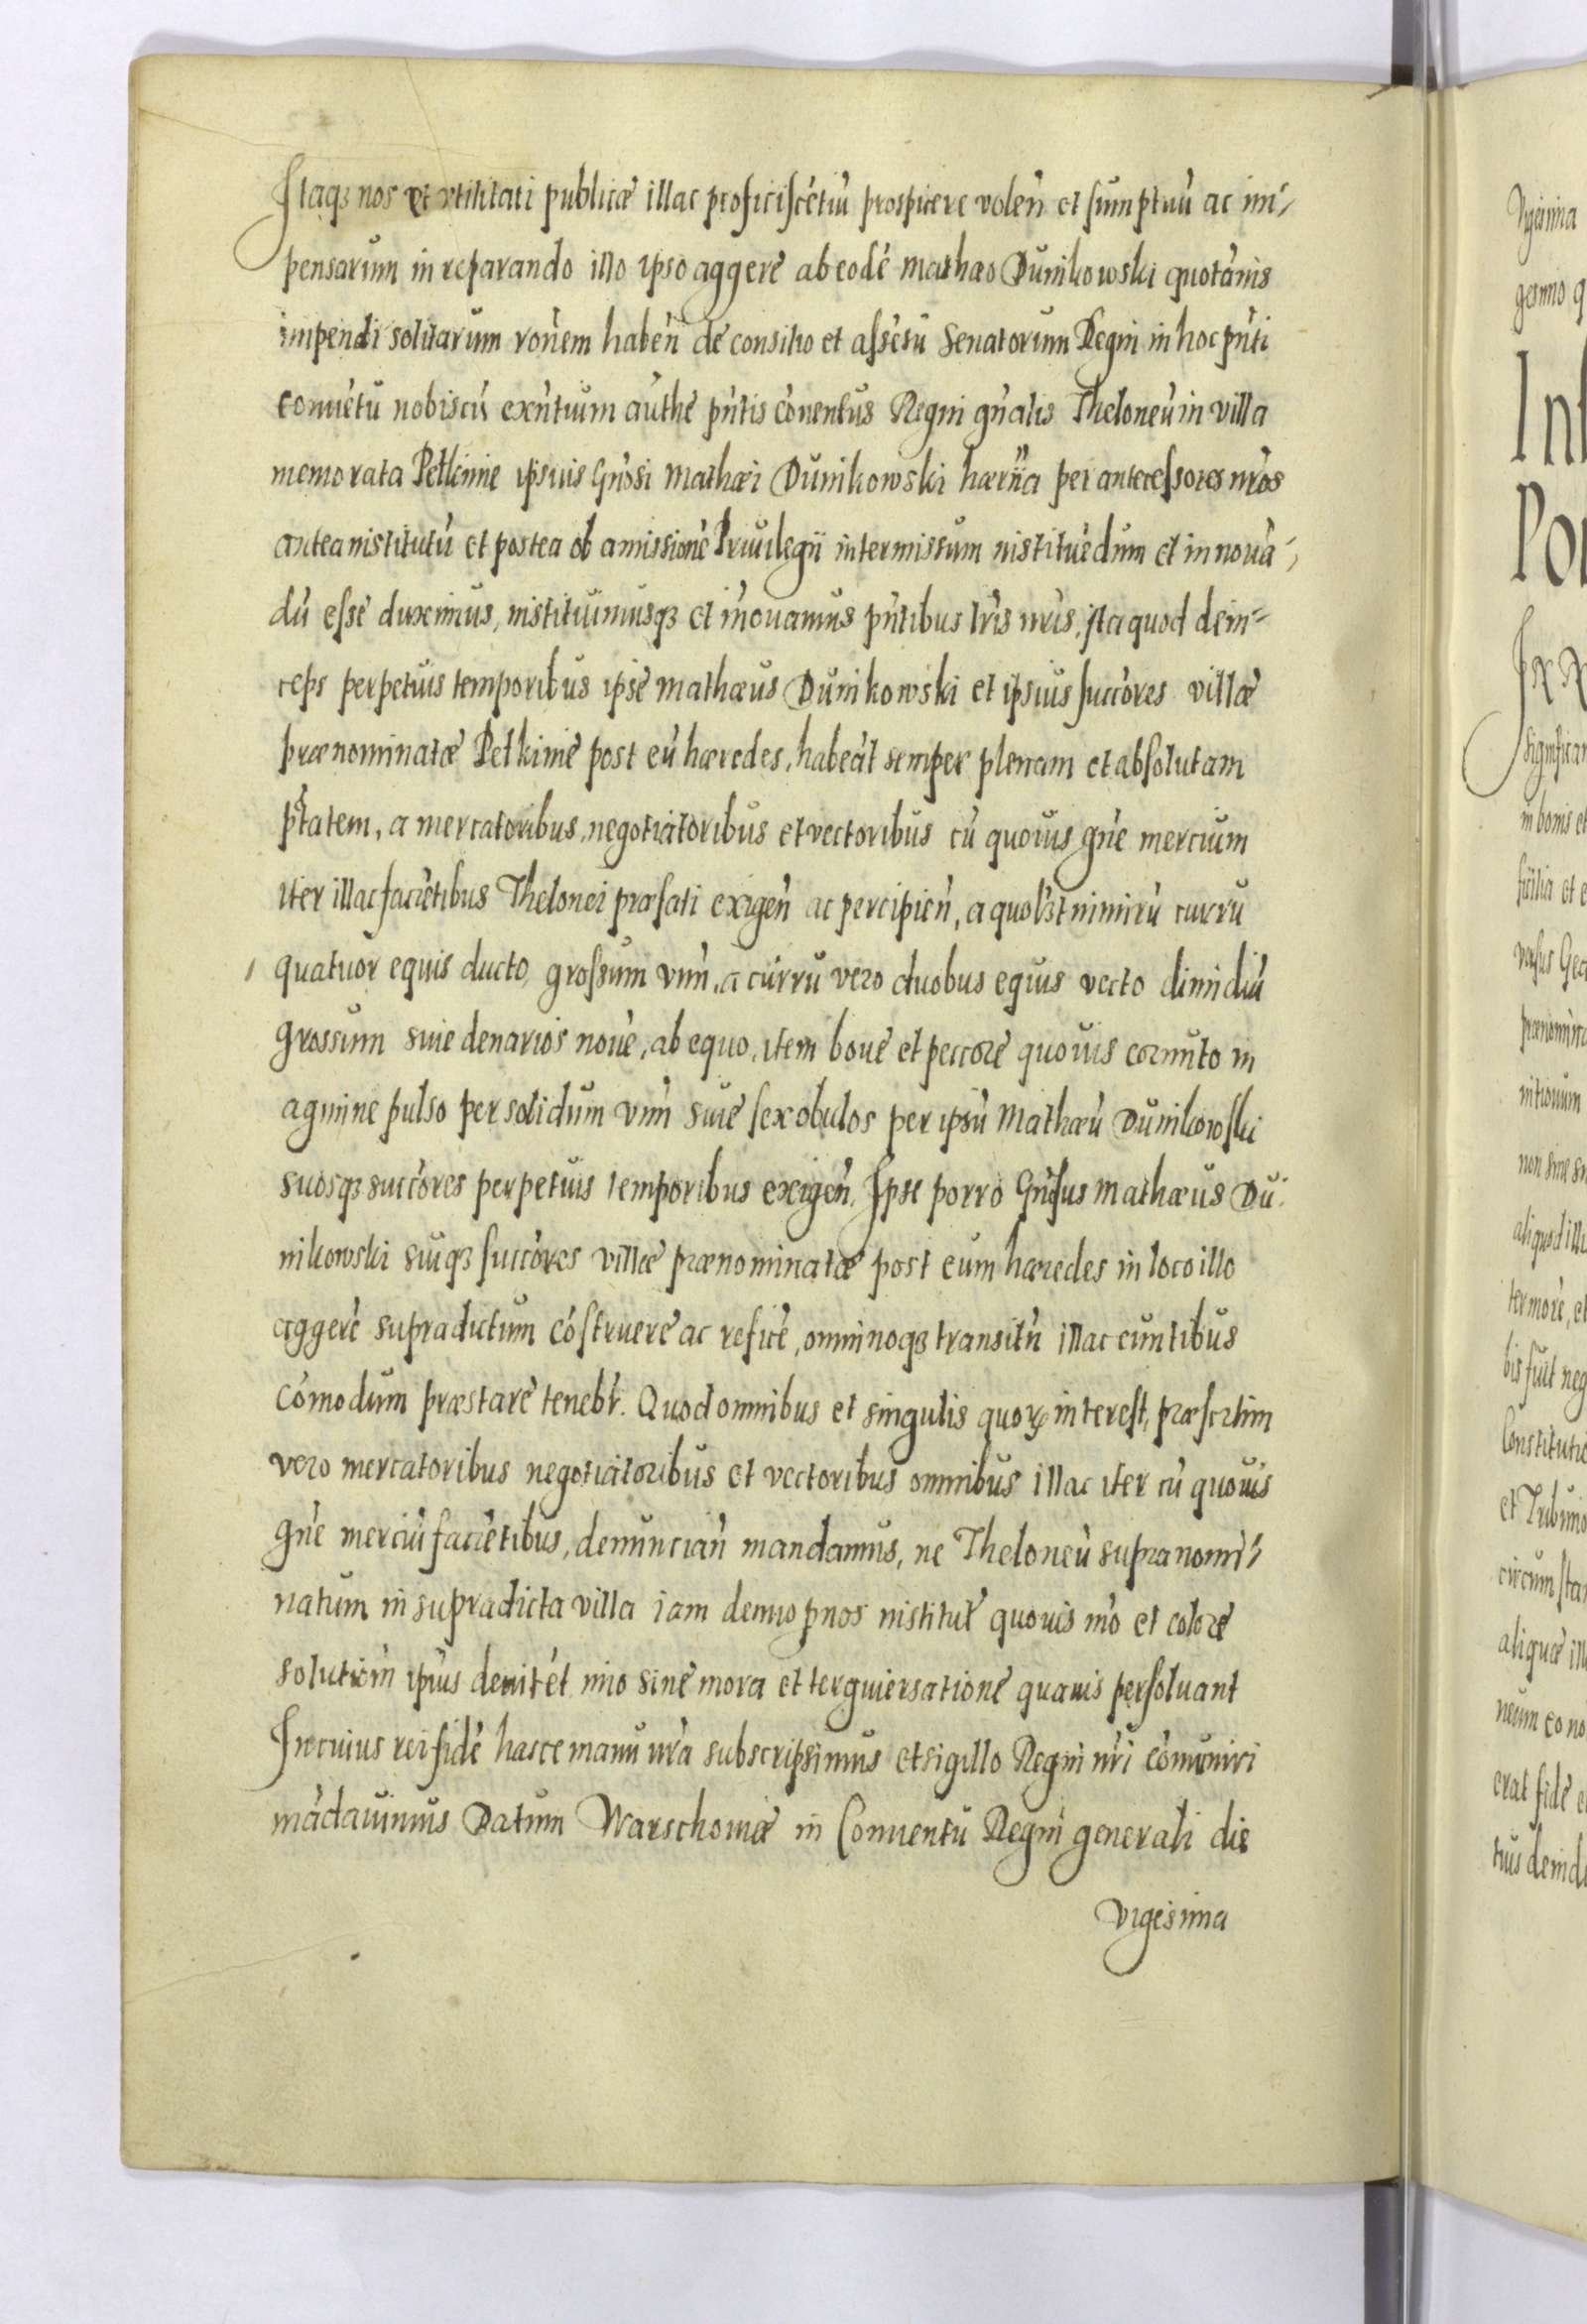 Itaqз nos et vtilitati publicæ illac proficiscẽtiũ prospicere voleñ et sumptuũ ac im-
pensarum in reparando illo ipso aggere ab eodẽ Mathæo Dunikowski quotãnis
impendi solitarum rõnem habeñ de consilio et assẽsu Senatorum Regni in hoc pñti
conuẽtu nobiscũ exñtium authẽ pñtis cõuentus Regni gñalis Theloneũ in villa
memorata Pełkinie ipsius Gñosi Mathæi Dunikowski hær̃ria per antecessores nr̃os
antea institutũ et postea ob amissionẽ Priuilegii intermissum instituẽdum et innouã-
dũ esse duximus, instituimusqз et inouamus pñtibus lr̃is nr̃is, Ita quod dein-
ceps perpetuis temporibus ipse Mathæus Dunikowski et ipsius succõres villæ
prænominatæ Pełkinie post eũ hæredes, habeãt semper plenam et absolutam
ptãtem, a mercatoribus, negotiatoribus et vectoribus cũ quouis gñe mercium
iter illac faciẽtibus Thelonei præfati exigeñ ac percipieñ, a quol3t nimirũ curru
quatuor equis ducto, grossum vnũ, a curru vero duobus equis vecto dimidiũ
grossum siue denarios nouẽ, ab equo, item boue et peccore quouis cornuto in
agmine pulso per solidum vnũ siue sex obulos per ipsũ Mathæũ Dunikowski
suosqз succõres perpetuis temporibus exigeñ. Ipse porro Gñsus Mathæus Du-
nikowski suiqз succõres villæ prænominatæ post eum hæredes in loco illo
aggerẽ supradictum cõstruere ac reficẽ, omninoqз transitũ illac euntibus
cõmodum præstare tenebr̃. Quod omnibus et singulis quoꝝ interest, præsertim
vero mercatoribus negotiatoribus et vectoribus omnibus illac iter cũ quouis
gñe merciũ faciẽtibus, denunciañ mandamus, ne Theloneũ supranomi-
natum in supradicta villa iam denuo p nos institut̃ quouis mõ et colore
solutioñ ipius deuitẽt imo sine mora et terguiersatione quauis persoluant
In cuius rei fidẽ hasce manu nr̃a subscripsimus et sigillo Regni nr̃i cõmuniri
mãdauimus Datum Warschouiæ in Conuentu Regni generali die
vigesima
Vigesima
gesimo q
Inf
Por
significan
in bonis et
ficilia et e
prænomina
nitionum
aliquod illi
termore, et
bis fuit neg
Constitutio
et Tribuno
circumstan
aliquæ ill
neum eo no
erat fidẽ e
tuis deinde